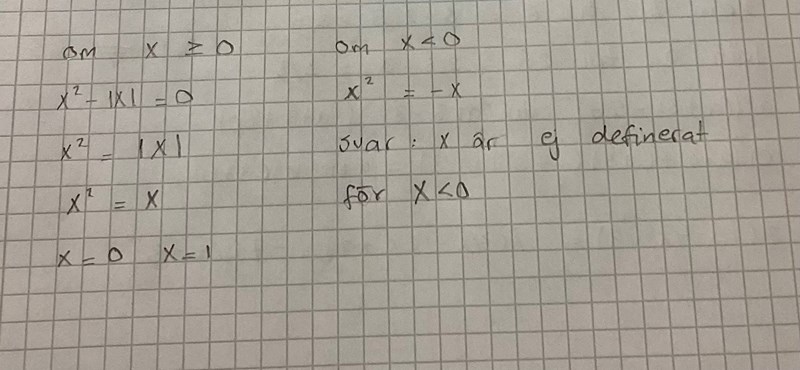 om x ≥ 0
x² - |x| = 0
x² = |x|
x² = x
x = 0 x = 1
om x < 0
x² = -x
svar : x är ej definerat
för x < 0